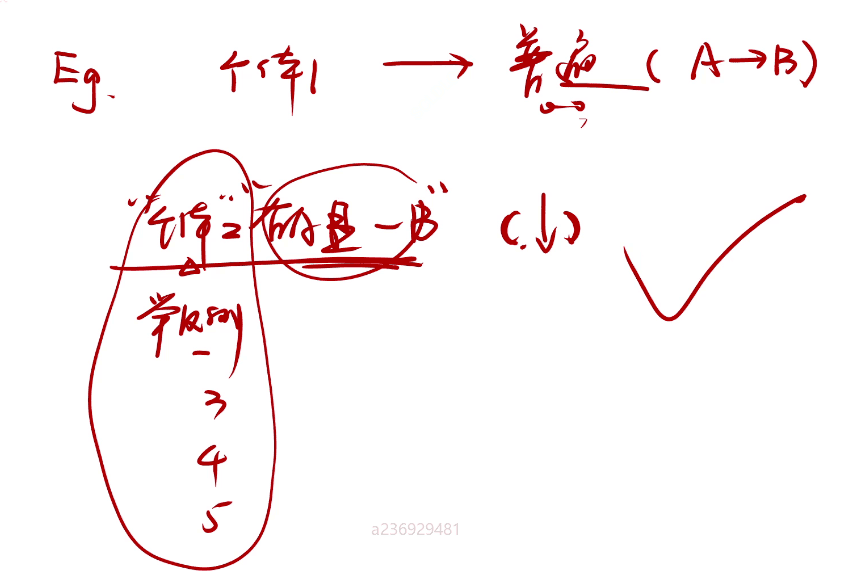 Eg. 个体1 → 普遍 (A→B)
"个体2" "有A且一B" (↓)
举反例
3
4
5
a236929481